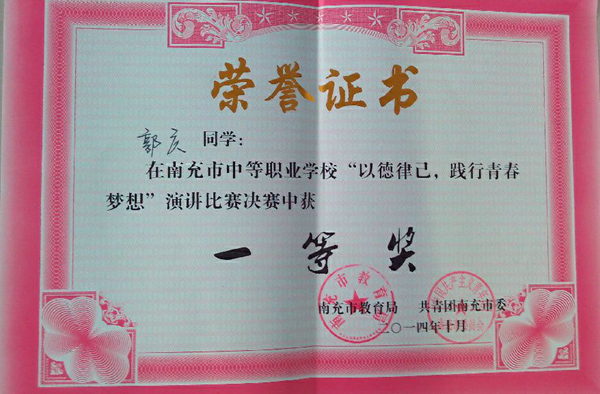 荣誉证书
郭庆 同学：
在南充市中等职业学校“以德律己，践行青春
梦想”演讲比赛决赛中获
一等奖
南充市教育局 共青团南充市委
二〇一四年十月
南充市教育局